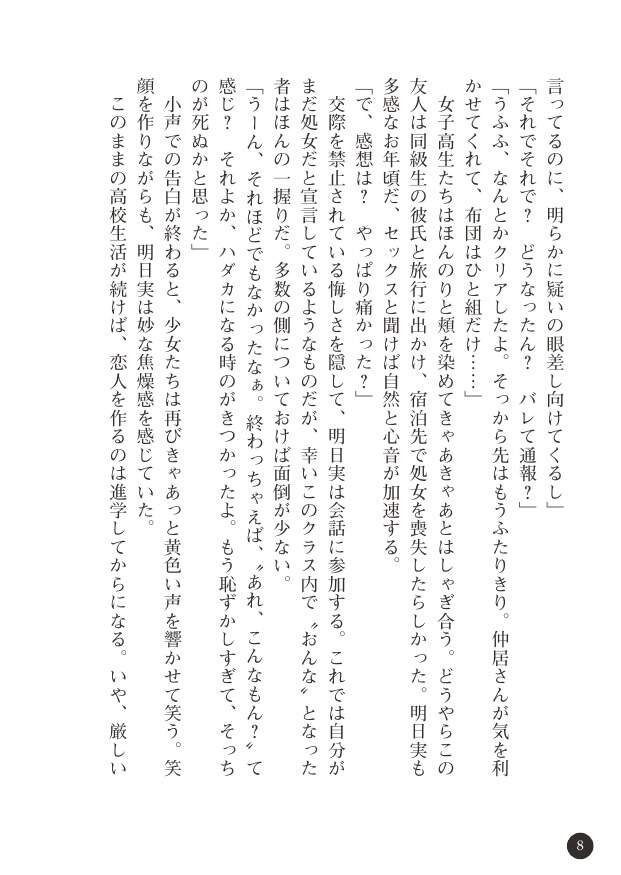 言ってるのに、明らかに疑いの眼差し向けてくるし」
「それでそれで？　どうなったん？　バレて通報？」
「うふふ、なんとかクリアしたよ。そっから先はもうふたりきり。仲居さんが気を利
かせてくれて、布団はひと組だけ……」
　女子高生たちはほんのりと頬を染めてきゃあきゃあとはしゃぎ合う。どうやらこの
友人は同級生の彼氏と旅行に出かけ、宿泊先で処女を喪失したらしかった。明日実も
多感なお年頃だ、セックスと聞けば自然と心音が加速する。
「で、感想は？　やっぱり痛かった？」
　交際を禁止されている悔しさを隠して、明日実は会話に参加する。これでは自分が
まだ処女だと宣言しているようなものだが、幸いこのクラス内で〝おんな〟となった
者はほんの一握りだ。多数の側についておけば面倒が少ない。
「うーん、それほどでもなかったなぁ。終わっちゃえば、〝あれ、こんなもん？〟て
感じ？　それよか、ハダカになる時のがきつかったよ。もう恥ずかしすぎて、そっち
のが死ぬかと思った」
　小声での告白が終わると、少女たちは再びきゃあっと黄色い声を響かせて笑う。笑
顔を作りながらも、明日実は妙な焦燥感を感じていた。
　このままの高校生活が続けば、恋人を作るのは進学してからになる。いや、厳しい
8